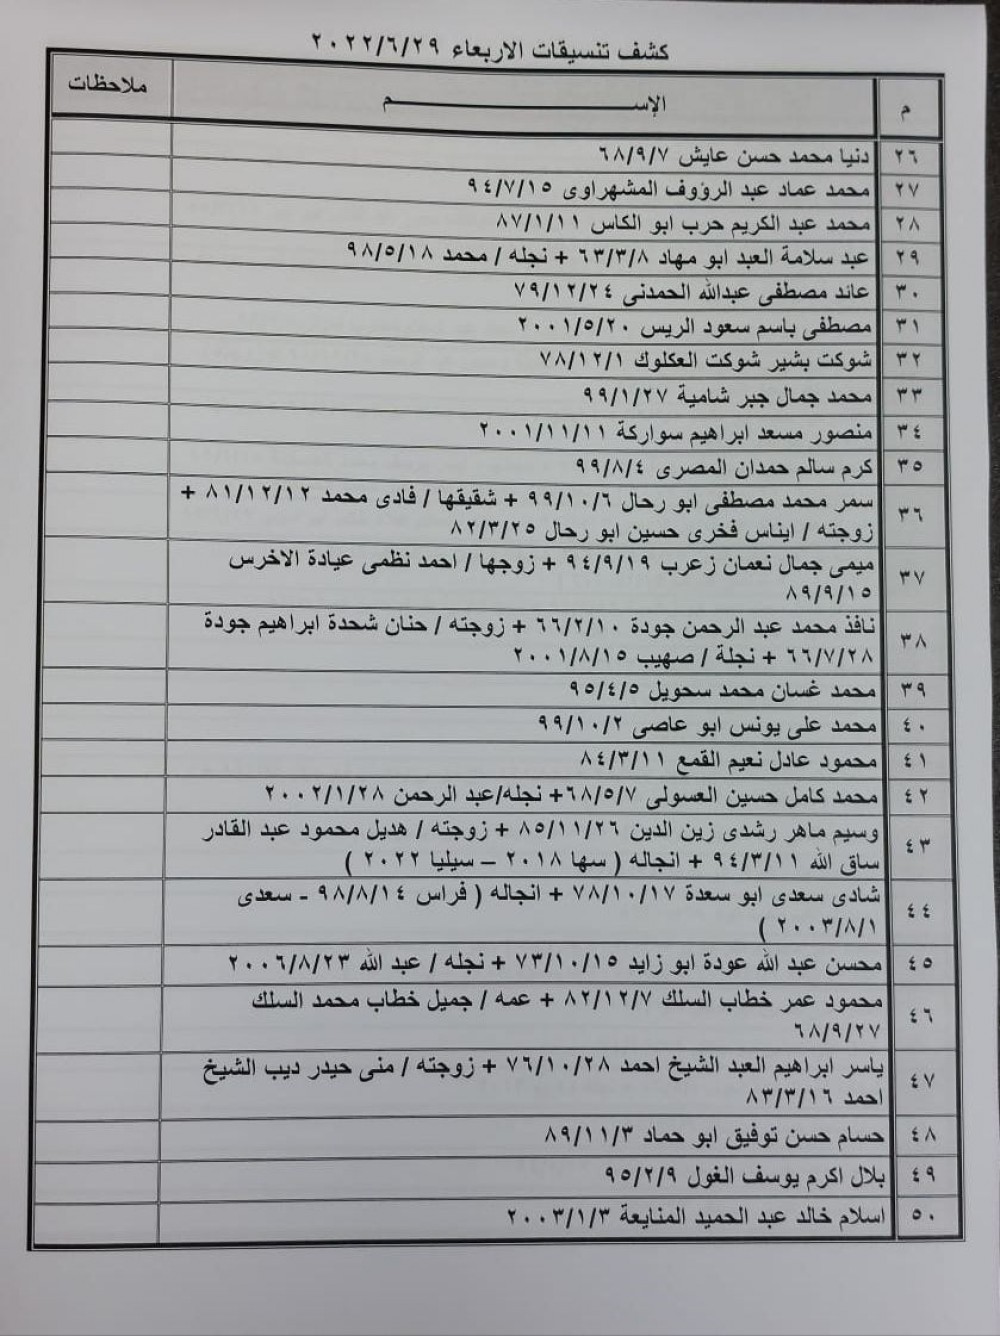 كشف تنسيقات الاربعاء ٢٠٢٢/٦/٢٩
م الإســـــم ملاحظات
٢٦ دنيا محمد حسن عايش ٦٨/٩/٧
٢٧ محمد عماد عبد الرؤوف المشهراوى ٩٤/٧/١٥
٢٨ محمد عبد الكريم حرب ابو الكاس ٨٧/١/١١
٢٩ عبد سلامة العبد ابو مهاد ٦٣/٣/٨ + نجله / محمد ٩٨/٥/١٨
٣٠ عائد مصطفى عبدالله الحمدنى ٧٩/١٢/٢٤
٣١ مصطفى باسم سعود الريس ٢٠٠١/٥/٢٠
٣٢ شوكت بشير شوكت العكلوك ٧٨/١٢/١
٣٣ محمد جمال جبر شامية ٩٩/١/٢٧
٣٤ منصور مسعد ابراهيم سواركة ٢٠٠١/١١/١١
٣٥ كرم سالم حمدان المصرى ٩٩/٨/٤
٣٦ سمر محمد مصطفى ابو رحال ٩٩/١٠/٦ + شقيقها / فادى محمد ٨١/١٢/١٢ +
زوجته / ايناس فخرى حسين ابو رحال ٨٢/٣/٢٥
٣٧ ميمى جمال نعمان زعرب ٩٤/٩/١٩ + زوجها / احمد نظمى عيادة الاخرس
٨٩/٩/١٥
٣٨ نافذ محمد عبد الرحمن جودة ٦٦/٢/١٠ + زوجته / حنان شحدة ابراهيم جودة
٦٦/٧/٢٨ + نجلة / صهيب ٢٠٠١/٨/١٥
٣٩ محمد غسان محمد سحويل ٩٥/٤/٥
٤٠ محمد على يونس ابو عاصى ٩٩/١٠/٢
٤١ محمود عادل نعيم القمع ٨٤/٣/١١
٤٢ محمد كامل حسين العسولى ٦٨/٥/٧+ نجله/عبد الرحمن ٢٠٠٢/١/٢٨
٤٣ وسيم ماهر رشدى زين الدين ٨٥/١١/٢٦ + زوجته / هديل محمود عبد القادر
ساق الله ٩٤/٣/١١ + انجاله ( سها ٢٠١٨ – سيليا ٢٠٢٢ )
٤٤ شادى سعدى ابو سعدة ٧٨/١٠/١٧ + انجاله ( فراس ٩٨/٨/١٤ - سعدى
٢٠٠٣/٨/١ )
٤٥ محسن عبد الله عودة ابو زايد ٧٣/١٠/١٥ + نجله / عبد الله ٢٠٠٦/٨/٢٣
٤٦ محمود عمر خطاب السلك ٨٢/١٢/٧ + عمه / جميل خطاب محمد السلك
٦٨/٩/٢٧
٤٧ ياسر ابراهيم العبد الشيخ احمد ٧٦/١٠/٢٨ + زوجته / منى حيدر ديب الشيخ
احمد ٨٣/٣/١٦
٤٨ حسام حسن توفيق ابو حماد ٨٩/١١/٣
٤٩ بلال اكرم يوسف الغول ٩٥/٢/٩
٥٠ اسلام خالد عبد الحميد المنايعة ٢٠٠٣/١/٣